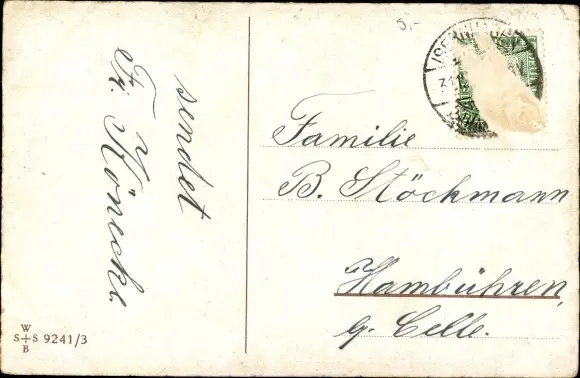 5,-
sendet
Fr. Könecke
Familie
B. Stöckmann
Hambühren,
b. Celle.
W
S+S 9241/3
B